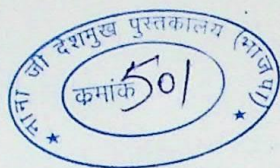 नाना जी देशमुख पुस्तकालय (भाजपा)
कमांक 501